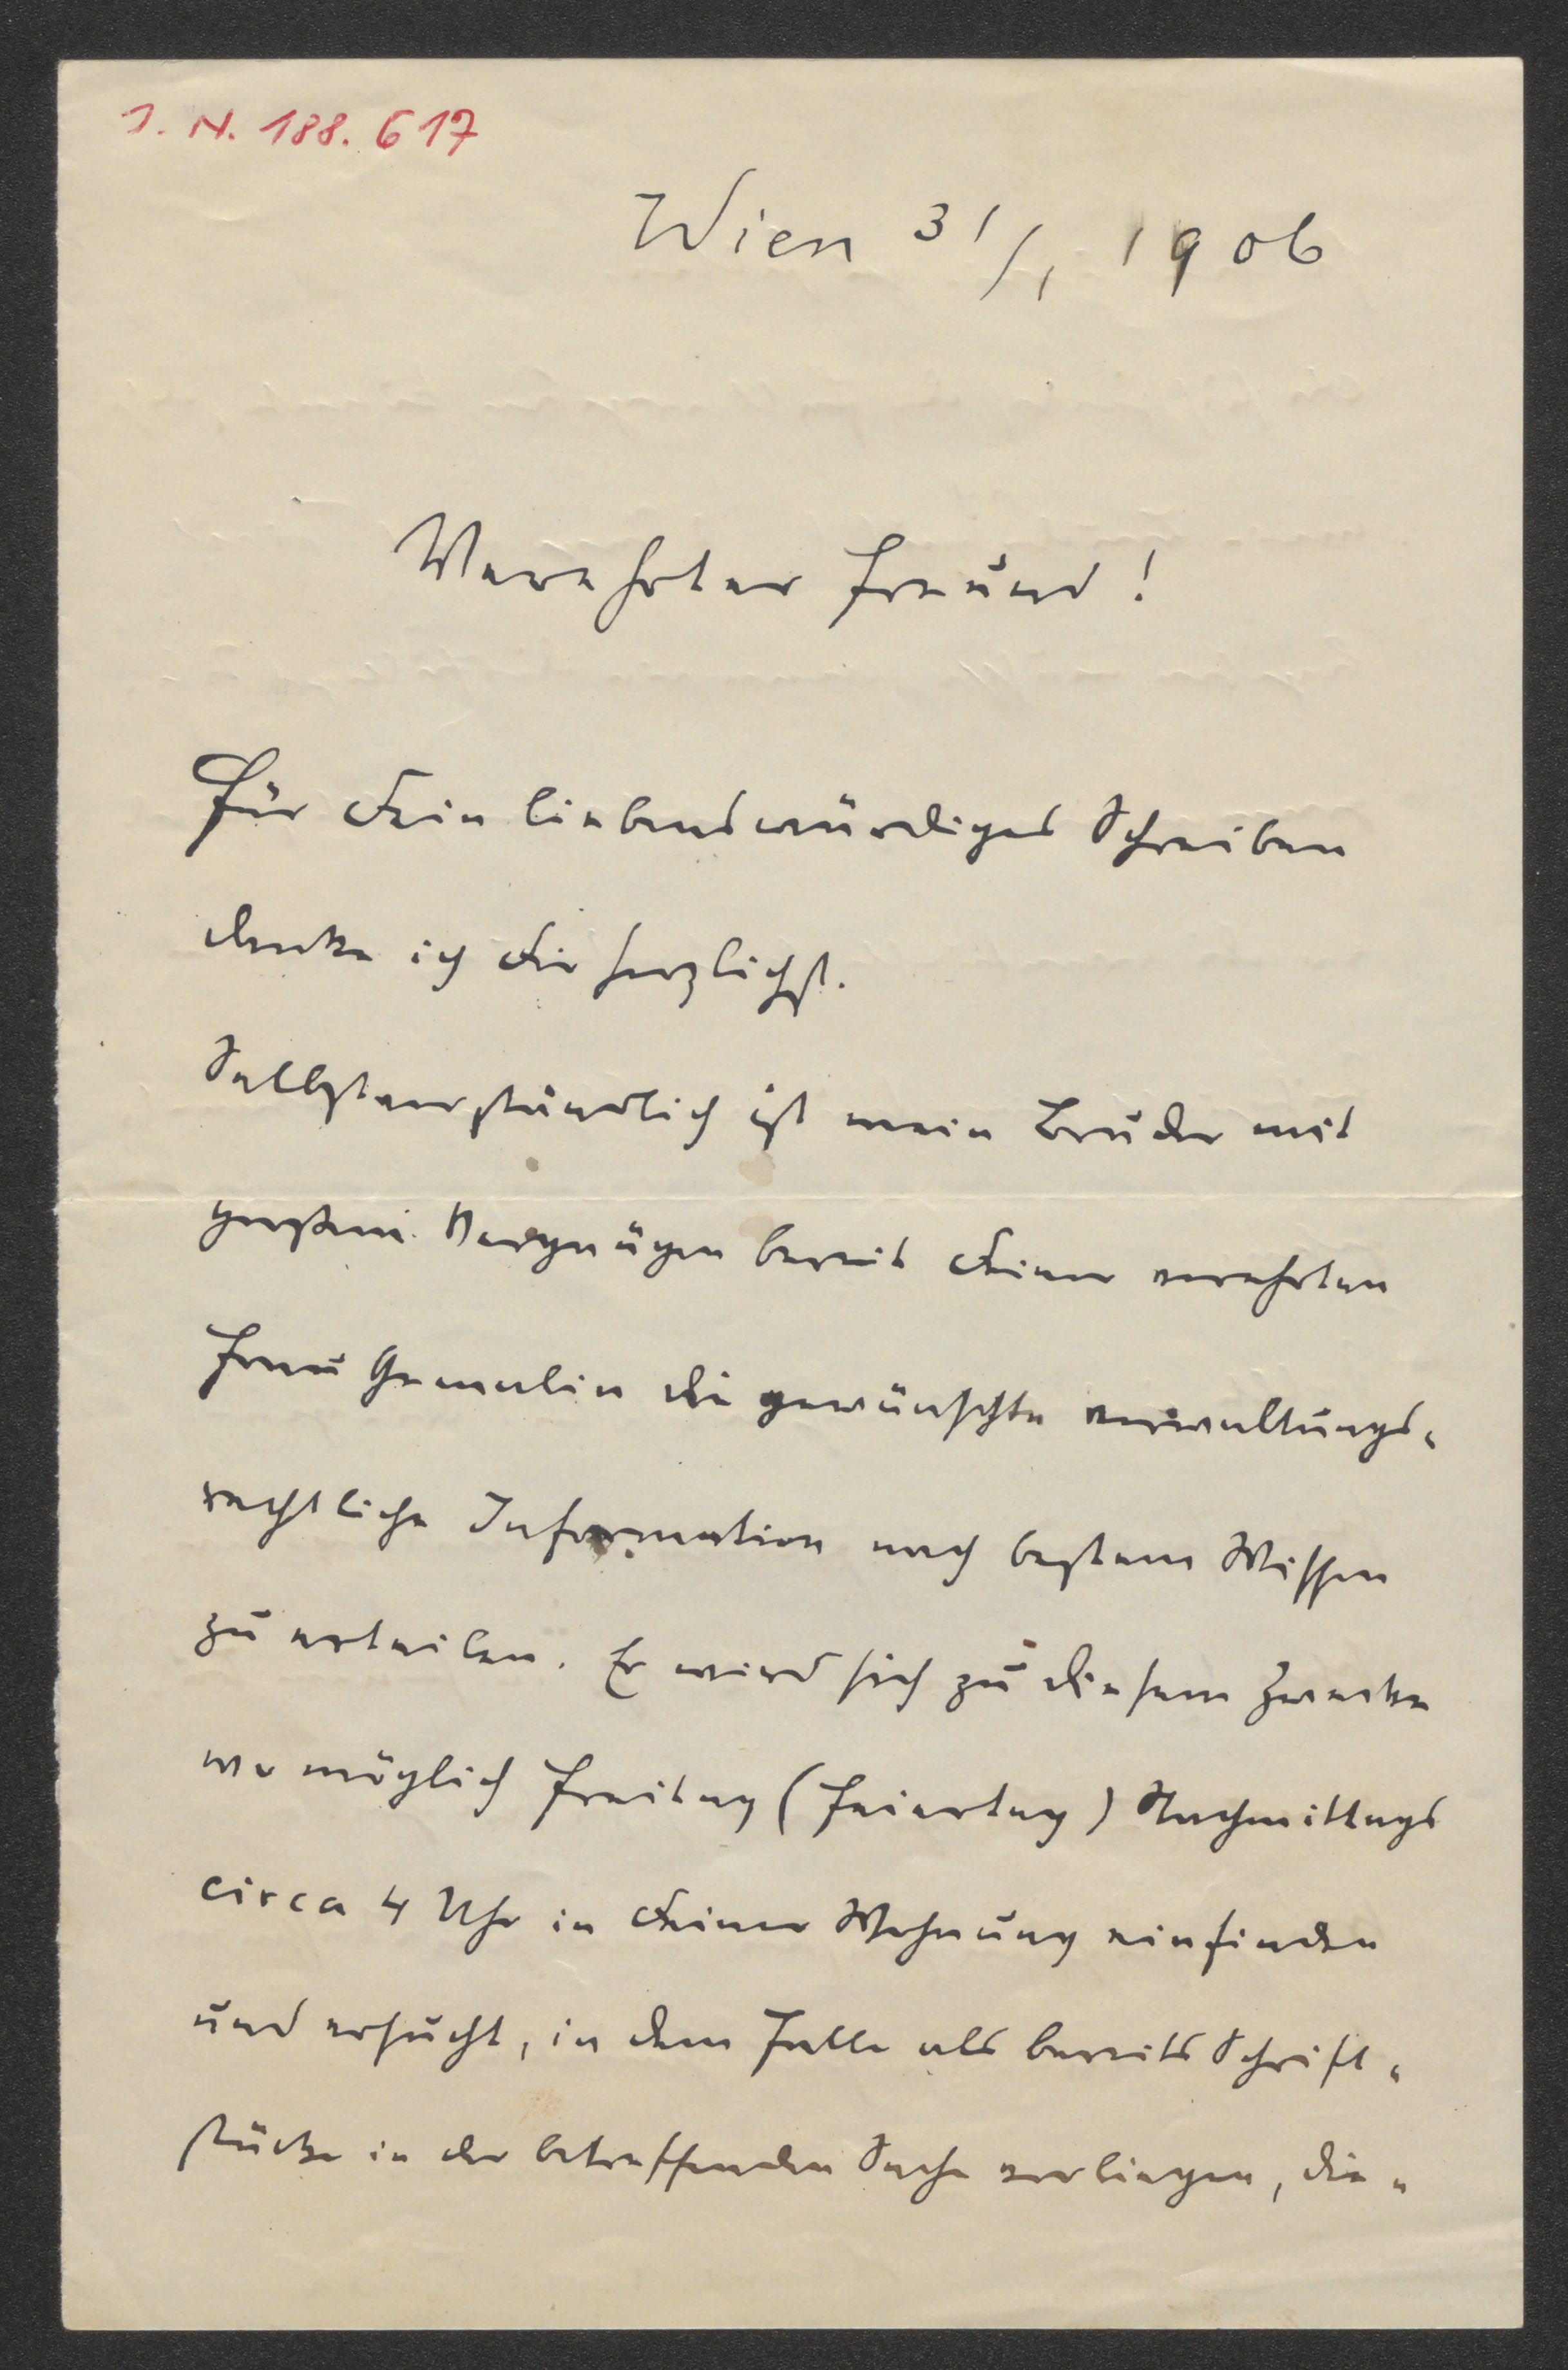 J. N. 188.617
Wien 31/1 1906
Verehrter Freund!
Für Dein liebenswürdiges Schreiben
danke ich Dir herzlichst.
Selbstverständlich ist mein Bruder mit
grossem Vergnügen bereit Deiner verehrten
Frau Gemalin die gewünschte verwaltungs-
rechtliche Information nach bestem Wissen
zu erteilen. Er wird sich zu diesem Zwecke
wo möglich Freitag (Feiertag) Nachmittags
circa 4 Uhr in Deiner Wohnung einfinden
und ersucht, in dem Falle als bereits Schrift-
stücke in der betreffenden Sache vorliegen, die-